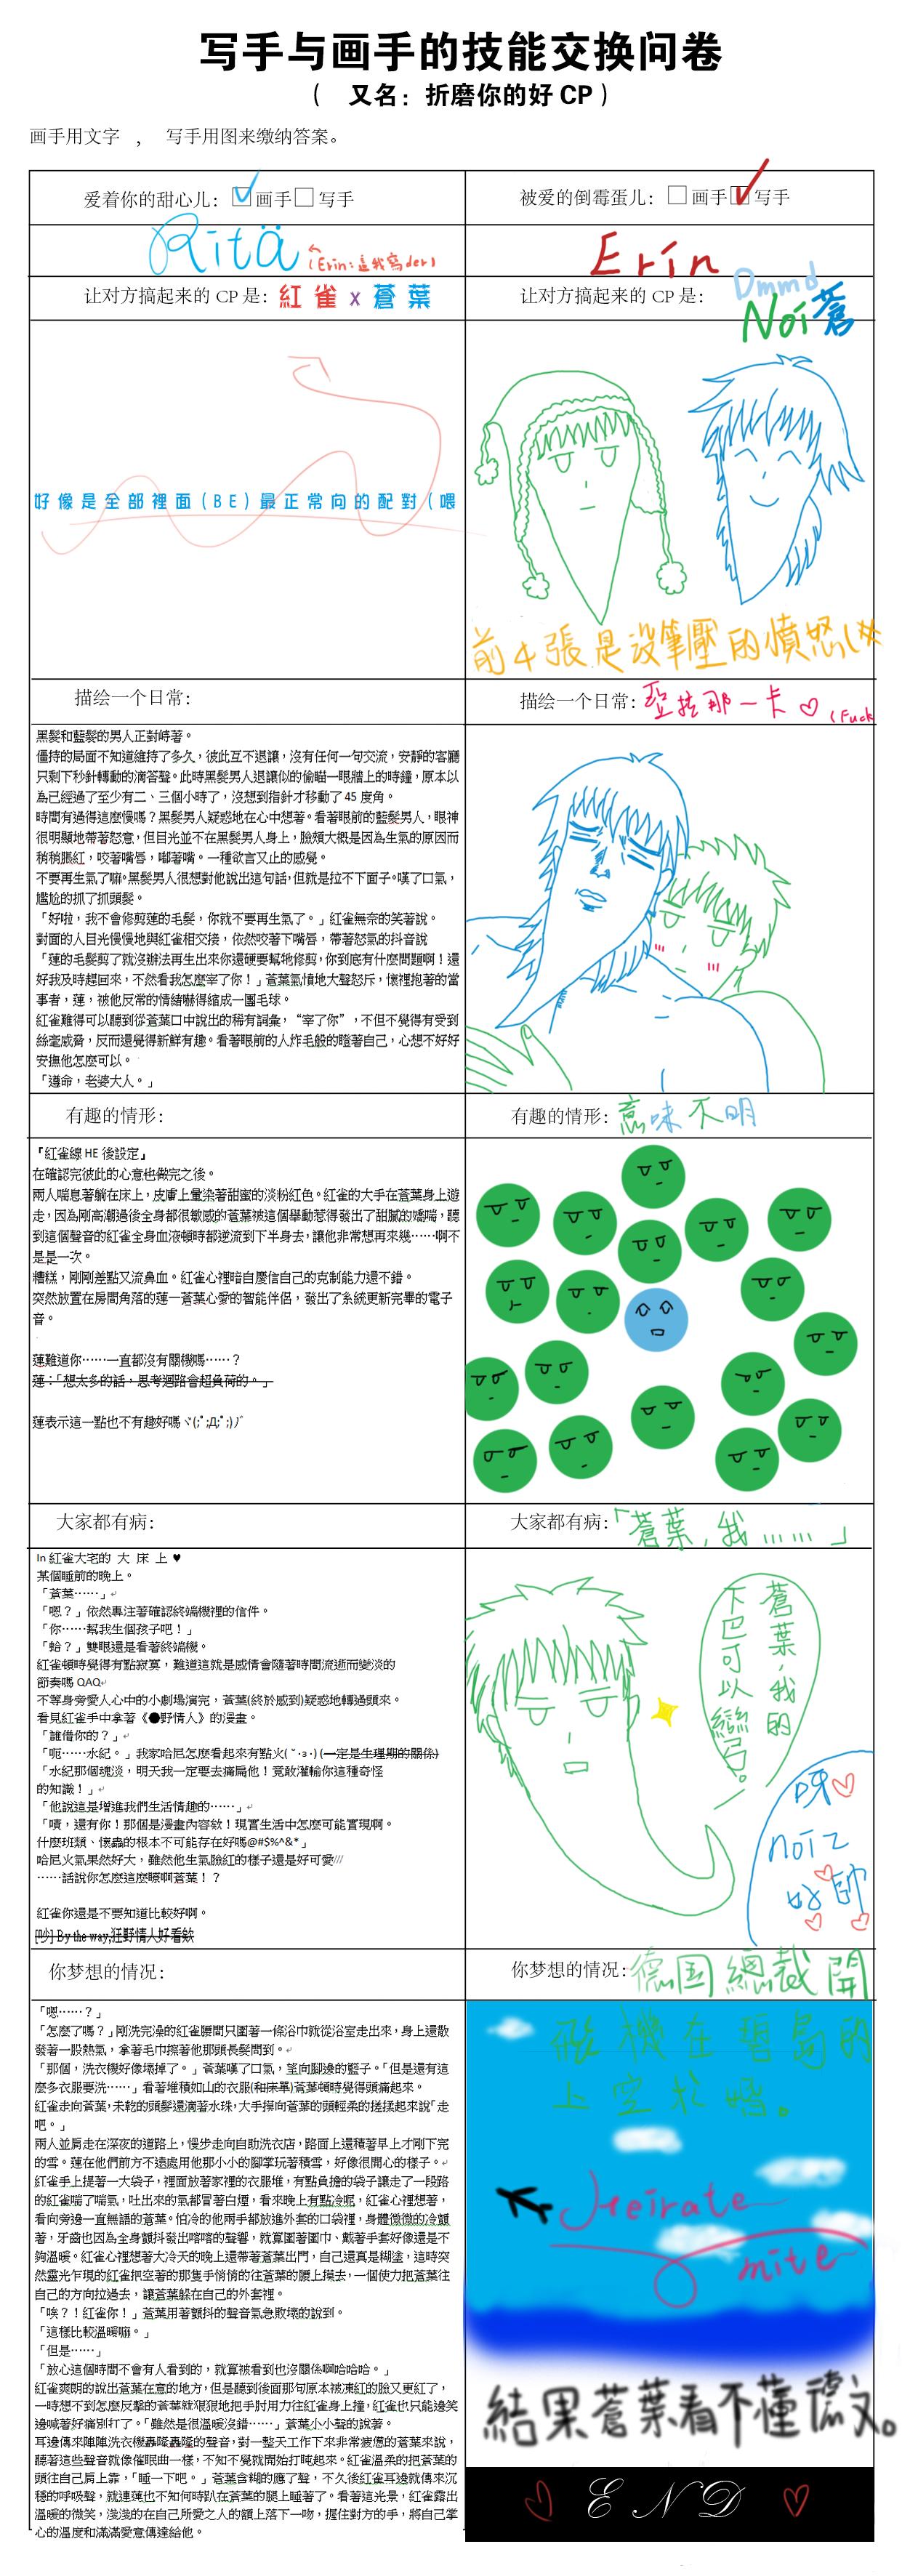 写手与画手的技能交换问卷
（ 又名：折磨你的好 CP ）
画手用文字 ， 写手用图来缴纳答案。
爱着你的甜心儿：☑画手☐写手
被爱的倒霉蛋儿：☐画手☑写手
Ritä
(Erin:這我寫der)
Erin
让对方搞起来的 CP 是：紅雀x蒼葉
让对方搞起来的 CP 是：
Dmmd
Noi蒼
好像是全部裡面(BE)最正常向的配對(喂
前4張是沒筆壓的憤怒(#
描绘一个日常：
黑髮和藍髮的男人正對峙著。
僵持的局面不知道維持了多久，彼此互不退讓，沒有任何一句交流，安靜的客廳
只剩下秒針轉動的滴答聲。此時黑髮男人退讓似的偷瞄一眼牆上的時鐘，原本以
為已經過了至少有二、三個小時了，沒想到指針才移動了 45 度角。
時間有過得這麼慢嗎？黑髮男人疑惑地在心中想著。看著眼前的藍髮男人，眼神
很明顯地帶著怒意，但目光並不在黑髮男人身上，臉頰大概是因為生氣的原因而
稍稍脹紅，咬著嘴唇，嘟著嘴。一種欲言又止的感覺。
不要再生氣了嘛。黑髮男人很想對他說出這句話，但就是拉不下面子。嘆了口氣，
尷尬的抓了抓頭髮。
「好啦，我不會修剪蓮的毛髮，你就不要再生氣了。」紅雀無奈的笑著說。
對面的人目光慢慢地與紅雀相交接，依然咬著下嘴唇，帶著怒氣的抖音說
「蓮的毛髮剪了就沒辦法再生出來你還硬要幫牠修剪，你到底有什麼問題啊！還
好我及時趕回來，不然看我怎麼宰了你！」蒼葉氣憤地大聲怒斥，懷裡抱著的當
事者，蓮，被他反常的情緒嚇得縮成一團毛球。
紅雀難得可以聽到從蒼葉口中說出的稀有詞彙，“宰了你”，不但不覺得有受到
絲毫威脅，反而還覺得新鮮有趣。看著眼前的人炸毛般的瞪著自己，心想不好好
安撫他怎麼可以。
「遵命，老婆大人。」
描绘一个日常：
那一卡♡
(Fuck
有趣的情形：
『紅雀線 HE 後設定』
在確認完彼此的心意也做完之後。
兩人喘息著躺在床上，皮膚上暈染著甜蜜的淡粉紅色。紅雀的大手在蒼葉身上遊
走，因為剛高潮過後全身都很敏感的蒼葉被這個舉動惹得發出了甜膩的嬌喘，聽
到這個聲音的紅雀全身血液頓時都逆流到下半身去，讓他非常想再來幾……啊不
是是一次。
糟糕，剛剛差點又流鼻血。紅雀心裡暗自慶信自己的克制能力還不錯。
突然放置在房間角落的蓮一蒼葉心愛的智能伴侶，發出了系統更新完畢的電子
音。
蓮難道你……一直都沒有關機嗎……？
蓮：「想太多的話，思考迴路會超負荷的。」
蓮表示這一點也不有趣好嗎ヾ(;ﾟ;Д;ﾟ;)ﾉﾞ
有趣的情形：意味不明
大家都有病：
In 紅雀大宅的 大 床 上 ♥
某個睡前的晚上。
「蒼葉……」
「嗯？」依然專注著確認終端機裡的信件。
「你……幫我生個孩子吧！」
「蛤？」雙眼還是看著終端機。
紅雀頓時覺得有點寂寞，難道這就是感情會隨著時間流逝而變淡的
節奏嗎 QAQ
不等身旁愛人心中的小劇場演完，蒼葉(終於感到)疑惑地轉過頭來。
看見紅雀手中拿著《●野情人》的漫畫。
「誰借你的？」
「呃……水紀。」我家哈尼怎麼看起來有點火(ˇ·з·) (一定是生理期的關係)
「水紀那個魂淡，明天我一定要去痛扁他！竟敢灌輸你這種奇怪
的知識！」
「他說這是增進我們生活情趣的……」
「嘖，還有你！那個是漫畫內容欸！現實生活中怎麼可能實現啊。
什麼班類、懷蟲的根本不可能存在好嗎@#$%^&*」
哈尼火氣果然好大，雖然他生氣臉紅的樣子還是好可愛///
……話說你怎麼這麼暸啊蒼葉！？
紅雀你還是不要知道比較好啊。
[吵] By the way,狂野情人好看欸
大家都有病：「蒼葉，我……」
蒼葉，我的
下巴可以彎弓！
呀♡
noiz
好帥
你梦想的情况：
「嗯……？」
「怎麼了嗎？」剛洗完澡的紅雀腰間只圍著一條浴巾就從浴室走出來，身上還散
發著一股熱氣，拿著毛巾擦著他那頭長髮問到。
「那個，洗衣機好像壞掉了。」蒼葉嘆了口氣，望向腳邊的籃子。「但是還有這
麼多衣服要洗……」看著堆積如山的衣服(和床單)蒼葉頓時覺得頭痛起來。
紅雀走向蒼葉，未乾的頭髮還滴著水珠，大手摸向蒼葉的頭輕柔的搓揉起來說「走
吧。」
兩人並肩走在深夜的道路上，慢步走向自助洗衣店，路面上還積著早上才剛下完
的雪。蓮在他們前方不遠處用他那小小的腳掌玩著積雪，好像很開心的樣子。
紅雀手上提著一大袋子，裡面放著家裡的衣服堆，有點負擔的袋子讓走了一段路
的紅雀喘了喘氣，吐出來的氣都冒著白煙，看來晚上有點冷呢，紅雀心裡想著，
看向旁邊一直無語的蒼葉。怕冷的他兩手都放進外套的口袋裡，身體微微的冷顫
著，牙齒也因為全身顫抖發出喀喀的聲響，就算圍著圍巾、戴著手套好像還是不
夠溫暖。紅雀心裡想著大冷天的晚上還帶著蒼葉出門，自己還真是糊塗，這時突
然靈光乍現的紅雀把空著的那隻手悄悄的往蒼葉的腰上摸去，一個使力把蒼葉往
自己的方向拉過去，讓蒼葉躲在自己的外套裡。
「唉？！紅雀你！」蒼葉用著顫抖的聲音氣急敗壞的說到。
「這樣比較溫暖嘛。」
「但是……」
「放心這個時間不會有人看到的，就算被看到也沒關係啊哈哈哈。」
紅雀爽朗的說出蒼葉在意的地方，但是聽到後面那句原本被凍紅的臉又更紅了，
一時想不到怎麼反擊的蒼葉就狠狠地把手肘用力往紅雀身上撞，紅雀也只能邊笑
邊喊著好痛別打了。「雖然是很溫暖沒錯……」蒼葉小小聲的說著。
耳邊傳來陣陣洗衣機轟隆轟隆的聲音，對一整天工作下來非常疲憊的蒼葉來說，
聽著這些聲音就像催眠曲一樣，不知不覺就開始打盹起來。紅雀溫柔的把蒼葉的
頭往自己肩上靠，「睡一下吧。」蒼葉含糊的應了聲，不久後紅雀耳邊就傳來沉
穩的呼吸聲，就連蓮也不知何時趴在蒼葉的腿上睡著了。看著這光景，紅雀露出
溫暖的微笑，淺淺的在自己所愛之人的額上落下一吻，握住對方的手，將自己掌
心的溫度和滿滿愛意傳達給他。
你梦想的情况：德国總裁開
飛機在碧島的
上空求婚。
Heirate
mite
結果蒼葉看不懂德文。
END